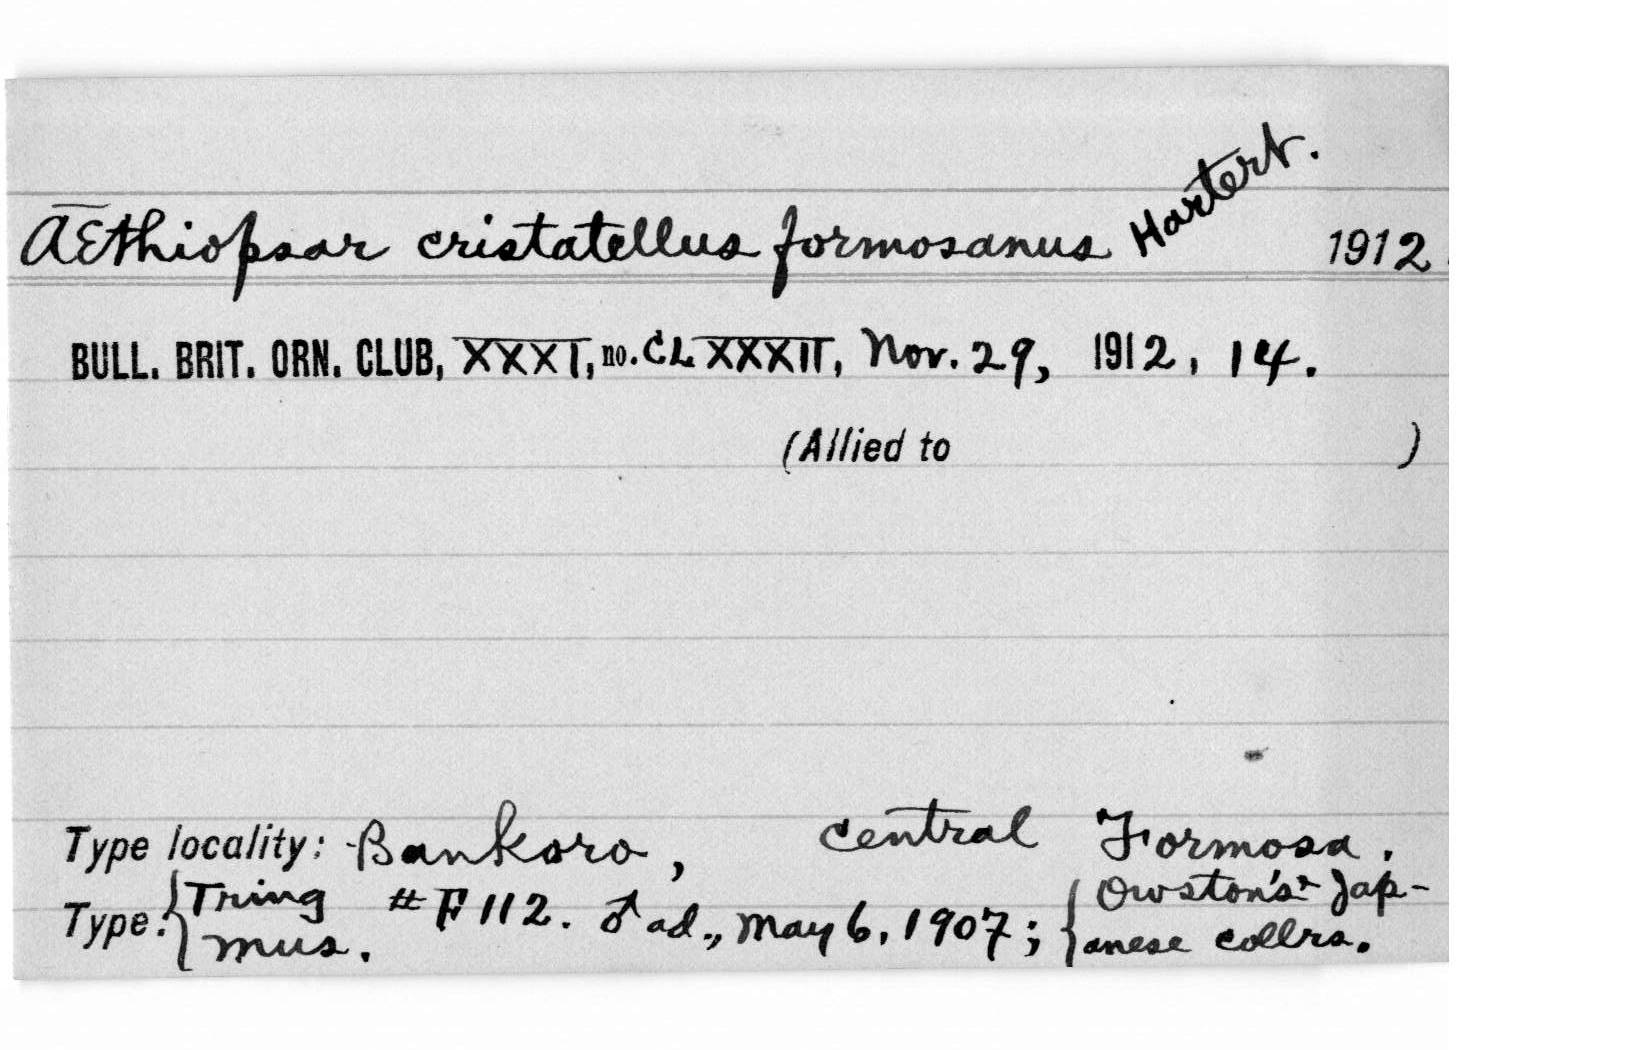 Æthiopsar cristatellus formosanus Hartert. 1912.
BULL. BRIT. ORN. CLUB, XXXI, no. CLXXXII, Nov. 29, 1912, 14.
(Allied to )
Type locality: Bankoro, central Formosa.
Type: { Tring mus. # F 112. ♂ ad., May 6, 1907; { Owston's Jap-
anese collrs.